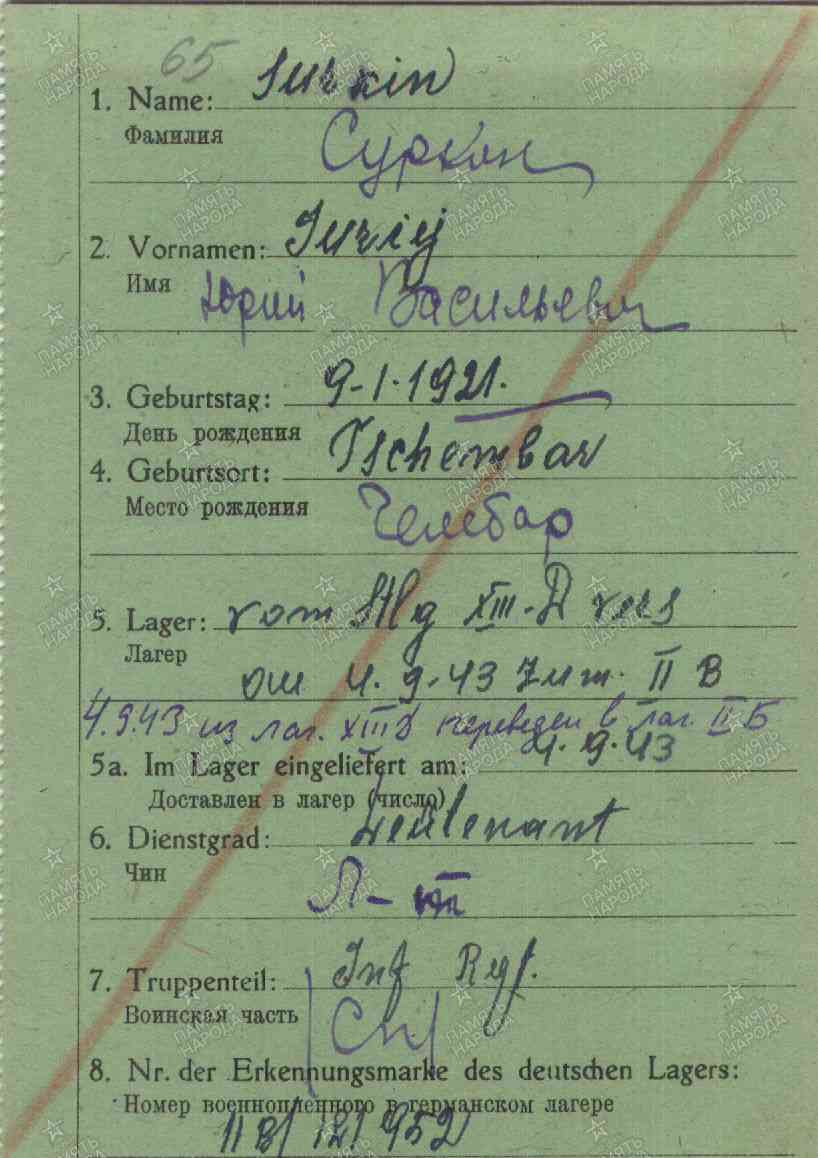 65
1. Name: Surkin
Фамилия
Суркин
2. Vornamen: Jurij
Имя Юрий Васильевич
3. Geburtstag: 9-1.1921.
День рождения
4. Geburtsort: Tschembar
Место рождения Челебар
5. Lager: vom Stlg XIII-D
Лагер
am 4.9.43 II B
4.9.43 из лаг. XIII D переведен в лаг. II Б
5a. Im Lager eingeliefert am: 4.9.43
Доставлен в лагер (число)
6. Dienstgrad: Leutenant
Чин
Л-т
7. Truppenteil: Inf Regt.
Воинская часть Сп
8. Nr. der Erkennungsmarke des deutschen Lagers:
Номер военнопленного в германском лагере
II B/ 121952
ПАМЯТЬ НАРОДА